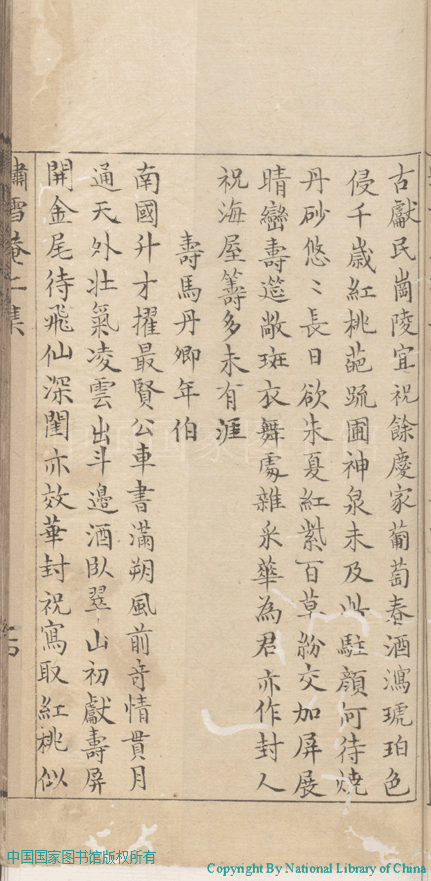 古獻民崗陵宜祝餘慶家葡萄春酒瀉琥珀色
侵千歲紅桃葩䟽圃神泉未及此駐顔何待燒
丹砂悠〻長日欲朱夏紅紫百草紛交加屏展
晴巒壽筵敞斑衣舞處雜釆華為君亦作封人
祝海屋籌多未有涯
壽馬丹卿年伯
南國升才擢最賢公車書滿朔風前奇情貫月
通天外壯氣凌雲出斗邊酒臥翠山初獻壽屏
開金尾待飛仙深閨亦效華封祝寫取紅桃似
嘯雪菴二集
中国国家图书馆版权所有
Copyright By National Library of China